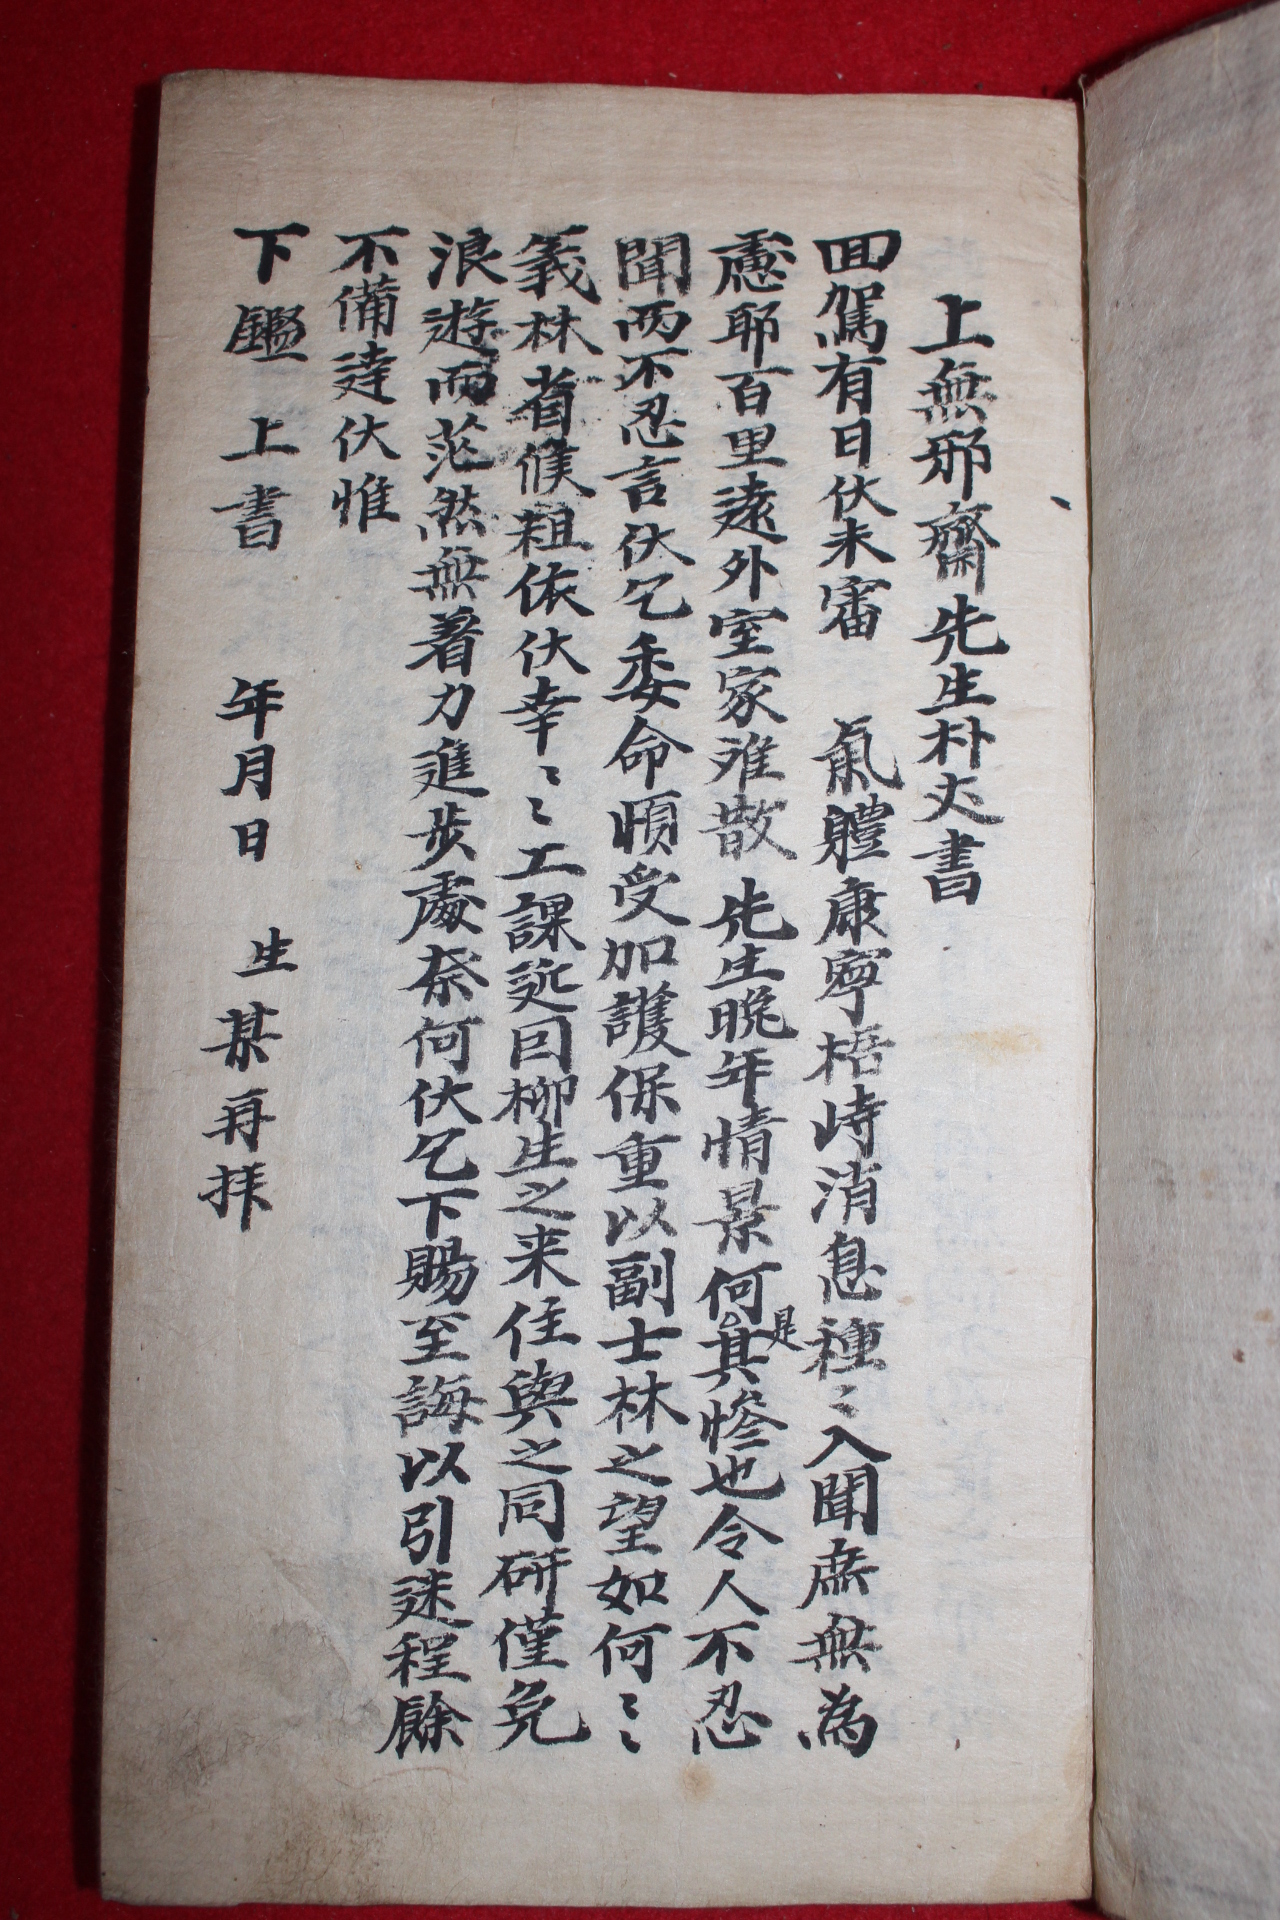 上無邪齋先生朴丈書
回駕有日伏未審 氣軆康寧梧峙消息種〻入聞庶無為
慮耶百里遠外室家難散 先生晩年情景何是其慘也令人不忍
聞而不忍言伏乞委命順受加護保重以副士林之望如何〻〻
義林省候粗依伏幸〻〻工課近因柳生之来住與之同研僅免
浪遊而茫然無着力進步處奈何伏乞下賜至誨以引迷程餘
不備達伏惟
下鑑 上書 年月日 生某再拜